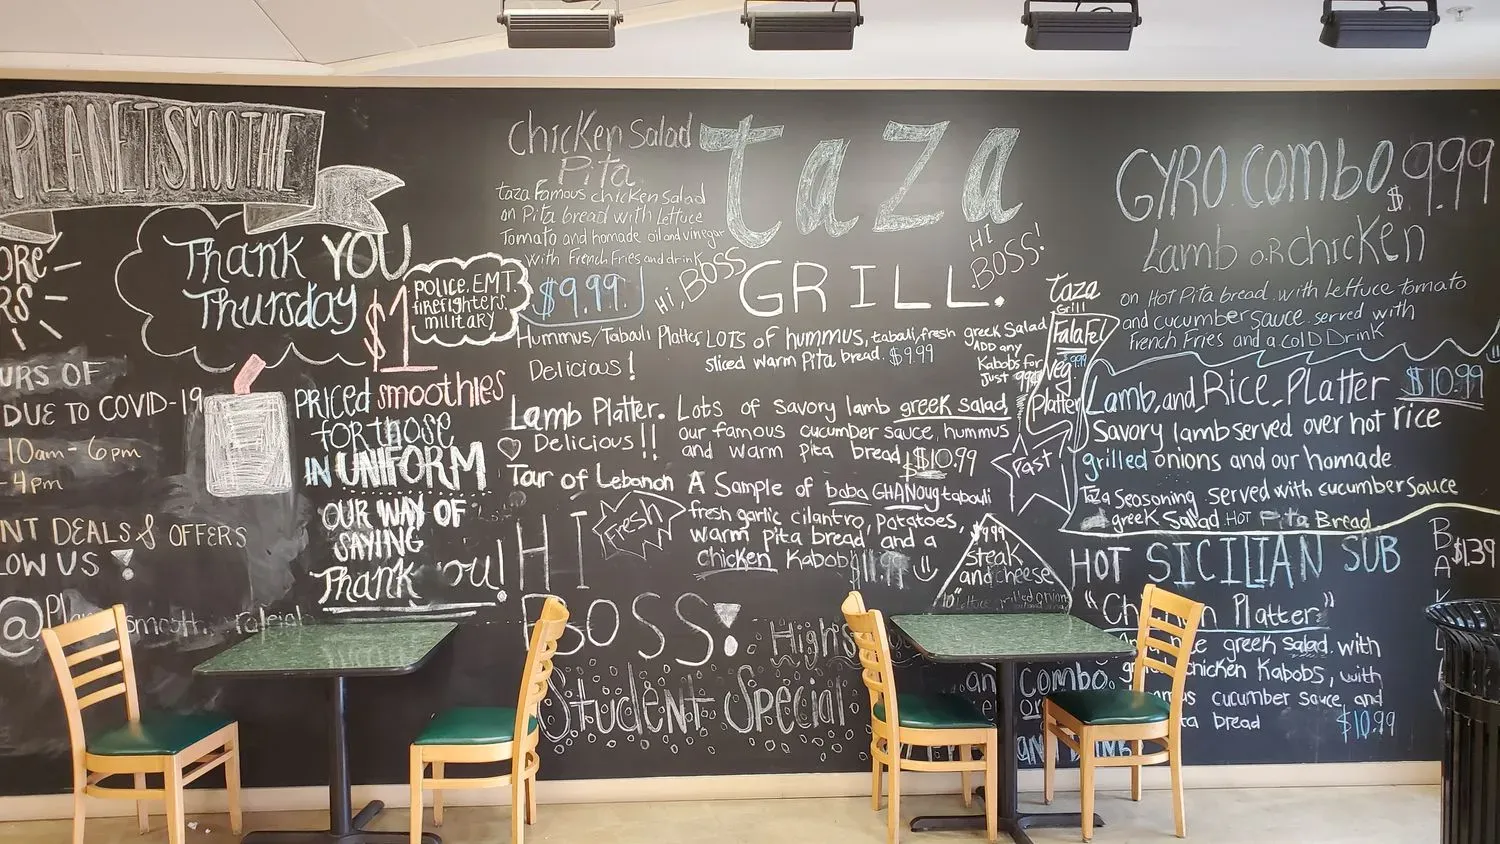 PLANET SMOOTHIE
Thank YOU
Thursday
$1
police, EMT,
firefighters,
military
PRICED smoothies
for those
IN UNIFORM
OUR WAY OF
SAYING
Thank You!
URS OF
DUE TO COVID-19
10am - 6pm
- 4pm
NT DEALS & OFFERS
LOW US !
chicken Salad
Pita
taza Famous chicken Salad
on Pita bread with Lettuce
Tomato and homade oil and vinegar
with French Fries and drink
$9.99
taza
GRILL.
Hi, BOSS
HI
BOSS!
Hummus/Tabouli Platter
Delicious!
LOTS of hummus, tabouli, fresh greek Salad
sliced warm Pita bread. $9.99
ADD any
Kabobs for
Just 99¢
Lamb Platter.
Delicious!!
Lots of savory lamb greek salad,
our famous cucumber sauce, hummus
and warm pita bread $10.99
Tour of Lebanon
A Sample of baba GHANOug tabouli
fresh garlic cilantro, potatoes,
warm pita bread, and a
chicken Kabob $11.99
Fresh
Fast
HI
BOSS!
$9.99
steak
and cheese
High
Student Special
taza
Grill
Falafel
$9.99
Veg.
Platter
GYRO COMBO $9.99
Lamb OR chicken
on Hot Pita bread with Lettuce tomato
and cucumber sauce served with
french Fries and a colD Drink
Lamb, and Rice, Platter $10.99
Savory lamb served over hot rice
grilled onions and our homade
Taza seasoning served with cucumber sauce
greek Salad HOT Pita Bread
HOT SICILIAN SUB
$1.39
Platter"
greek salad with
chicken Kabobs, with
cucumber sauce, and
bread
$10.99
combo
or